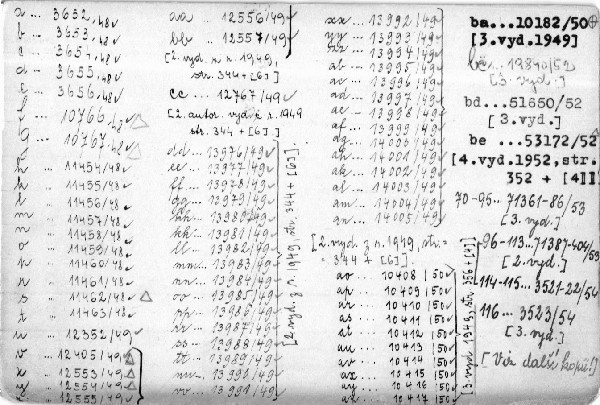 a ... 3652/48
b ... 3653/48
c ... 3654/48
d ... 3655/48
e ... 3656/48
f ... 10766/48
g ... 10767/48
h ... 11454/48
k ... 11455/48
l ... 11456/48
m ... 11457/48
n ... 11458/48
o ... 11459/48
p ... 11460/48
r ... 11461/48
s ... 11462/48
t ... 11463/48
u ... 12352/49
v ... 12405/49
x ... 12553/49
y ... 12554/49
z ... 12555/49
aa ... 12556/49
bb ... 12557/49
[2. vyd. z r. 1949,
str. 344 + [6]]
cc ... 12767/49
[2. autor. vyd. z r. 1949
str. 344 + [6].]
dd ... 13976/49
ee ... 13977/49
ff ... 13978/49
gg ... 13979/49
hh ... 13980/49
kk ... 13981/49
ll ... 13982/49
mm ... 13983/49
nn ... 13984/49
oo ... 13985/49
pp ... 13986/49
rr ... 13987/49
ss ... 13988/49
tt ... 13989/49
uu ... 13990/49
vv ... 13991/49
[2. vyd. z r. 1949, str. 344 + [6].]
xx ... 13992/49
yy ... 13993/49
zz ... 13994/49
ab ... 13995/49
ac ... 13996/49
ad ... 13997/49
ae ... 13998/49
af ... 13999/49
ag ... 14000/49
ah ... 14001/49
ak ... 14002/49
al ... 14003/49
am ... 14004/49
an ... 14005/49
[2. vyd. z r. 1949, str.
344 + [6].]
ao ... 10408/50
ap ... 10409/50
ar ... 10410/50
as ... 10411/50
at ... 10412/50
au ... 10413/50
av ... 10414/50
ax ... 10415/50
ay ... 10416/50
az ... 10417/50
[3. vyd. 1949, str. 356 + [4]]
ba...10182/50
[3.vyd.1949]
bc... 19840/52
[3. vyd.]
bd...51650/52
[3.vyd.]
be ...53172/52
[4.vyd.1952,str.
352 + [4]]
70-95... 71361-86/53
[3. vyd.]
96-113...71387-404/53
[2. vyd.]
114-115... 3521-22/54
116... 3523/54
[3. vyd.]
[Viz další kopii!]